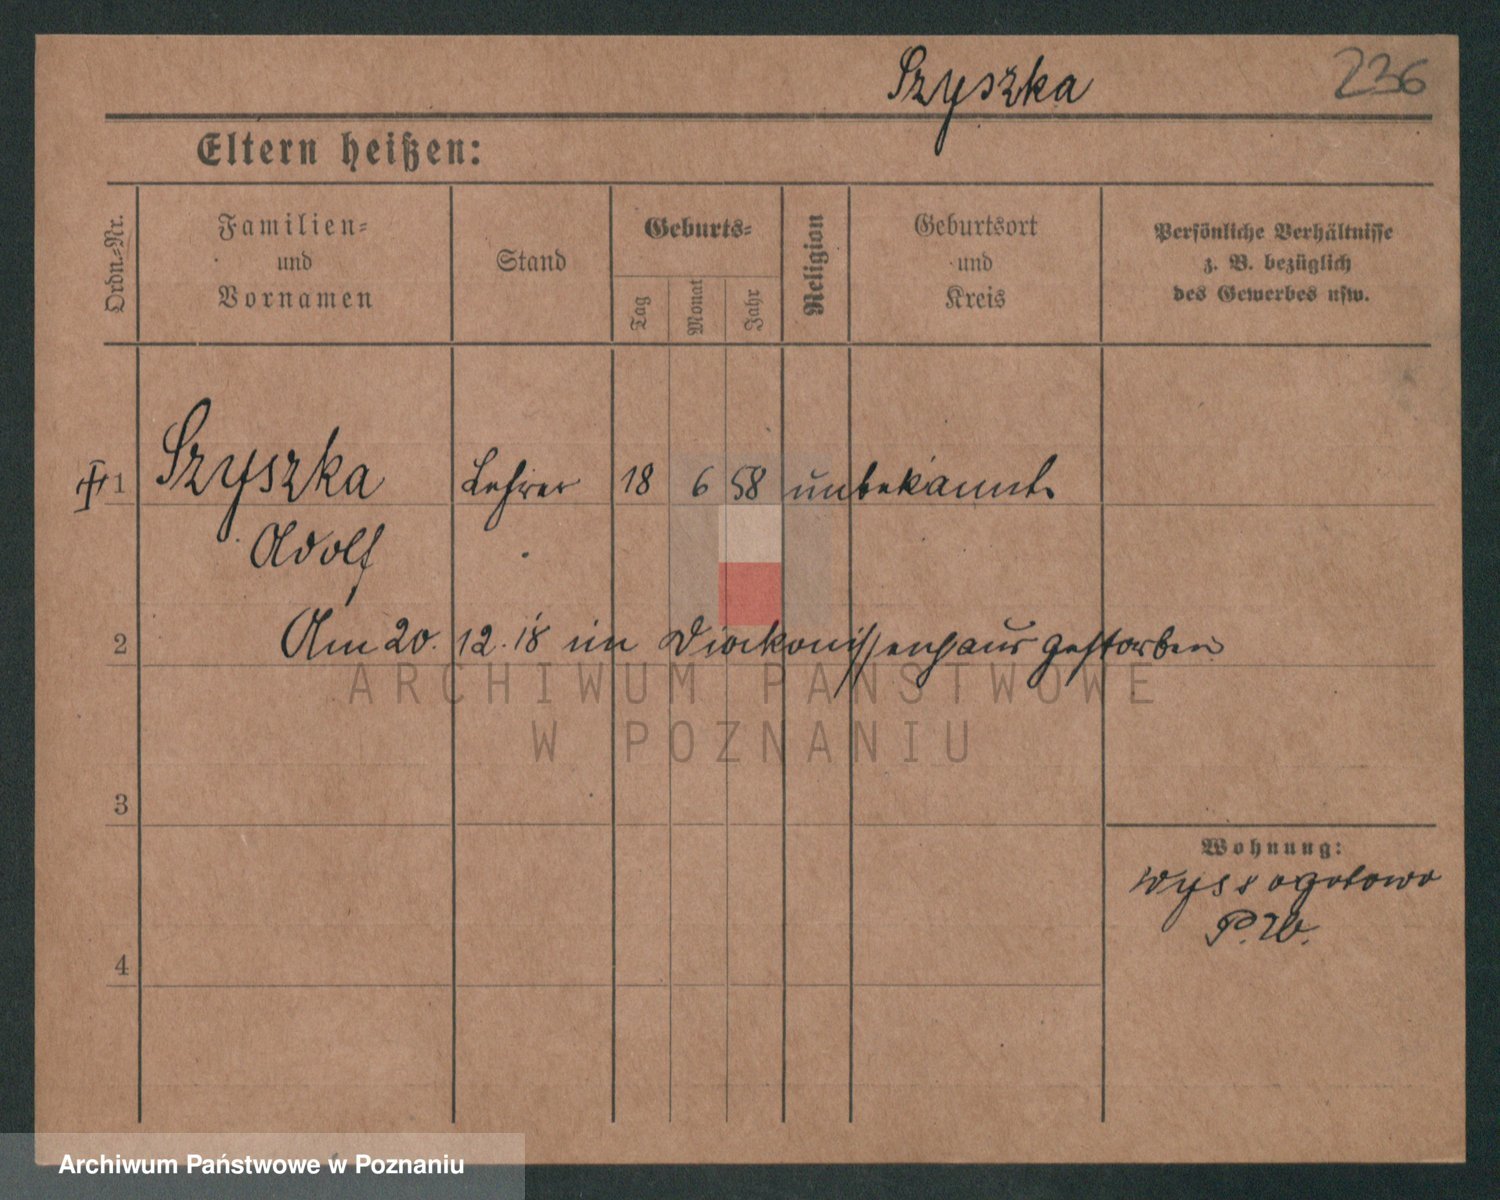 Szyszka
236
Eltern heißen:
Ordn.-Nr.
Familien-
und
Vornamen
Stand
Geburts-
Tag
Monat
Jahr
Religion
Geburtsort
und
Kreis
Persönliche Verhältnisse
z. B. bezüglich
des Gewerbes usw.
1 Szyszka Lehrer 18 6 58 unbekannt.
Adolf
2 Am 20. 12. 18 im Diakonissenhaus gestorben
ARCHIWUM PAŃSTWOWE
W POZNANIU
3
Wohnung:
Wyssogotowo
P. W.
4
Archiwum Państwowe w Poznaniu